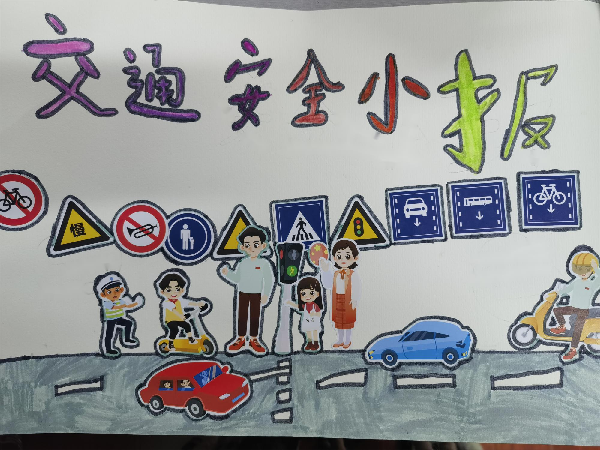 交通安全小报
慢